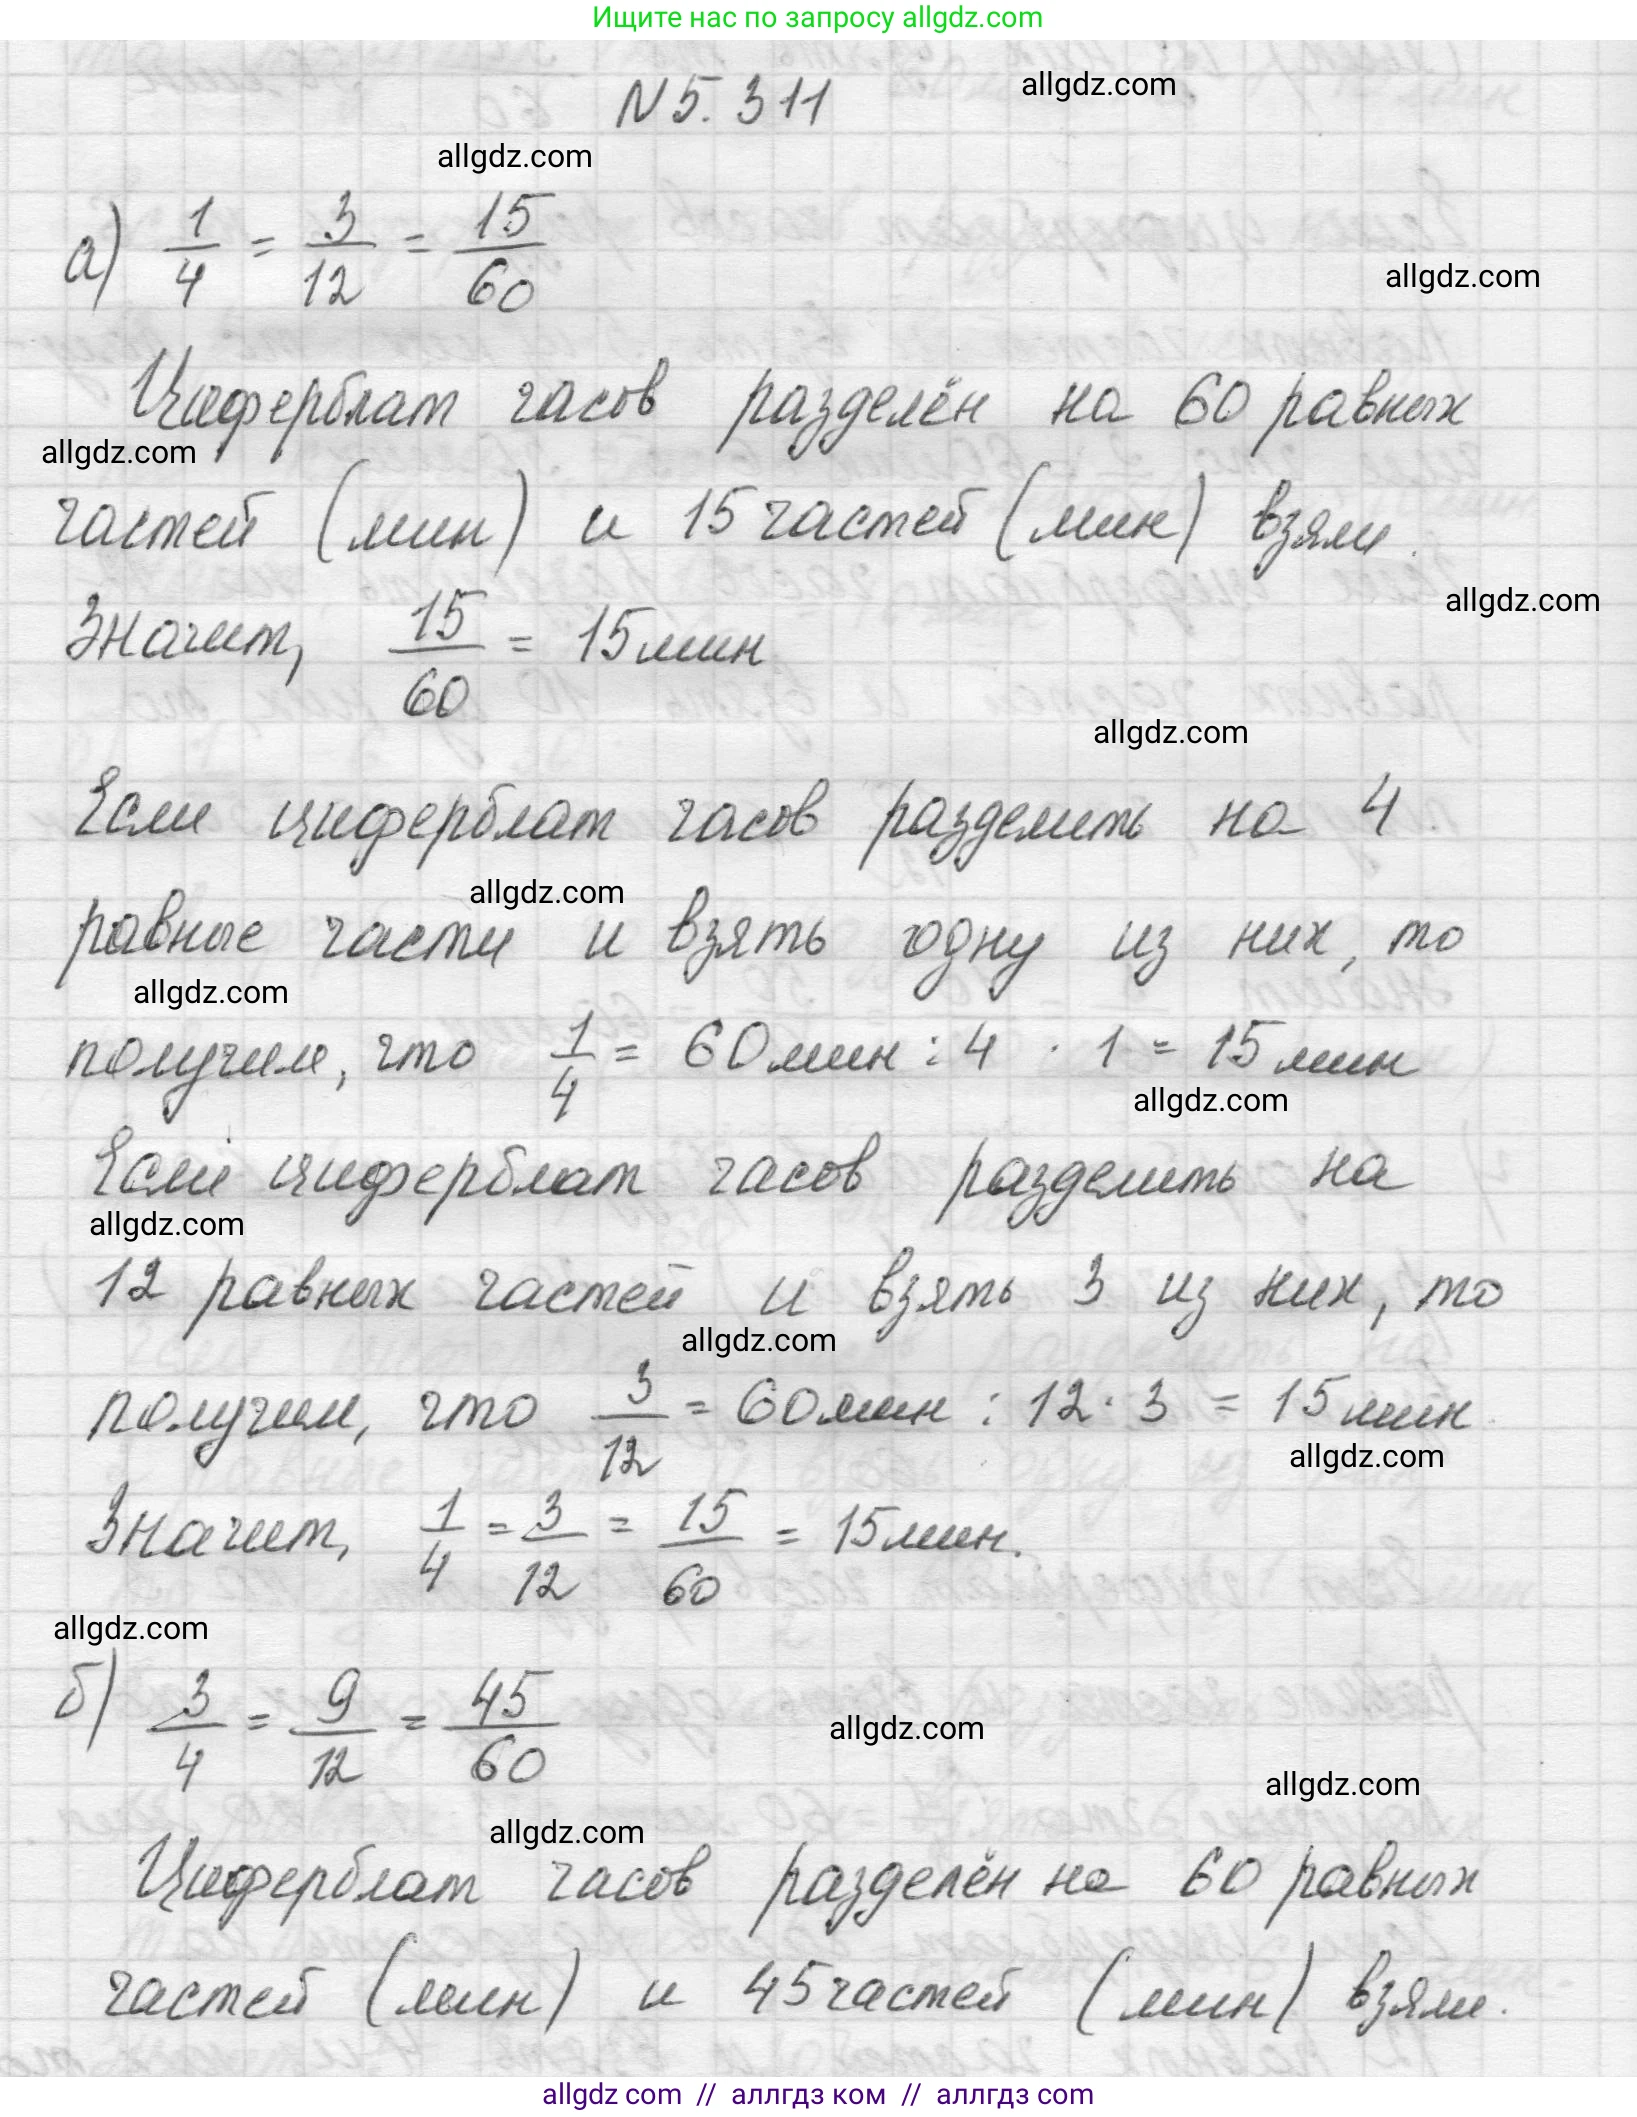 Ищите нас по запросу allgdz.com
N 5. 311
allgdz.com
allgdz.com
а) 1/4 = 3/12 = 15/60
allgdz.com
Циферблат часов разделён на 60 равных
allgdz.com
частей (мин) и 15 частей (мин) взяли.
allgdz.com
Значит, 15/60 = 15 мин
allgdz.com
Если циферблат часов разделить на 4
allgdz.com
равные части и взять одну из них, то
allgdz.com
получим, что 1/4 = 60 мин : 4 · 1 = 15 мин
allgdz.com
Если циферблат часов разделить на
allgdz.com
12 равных частей и взять 3 из них, то
allgdz.com
получим, что 3/12 = 60 мин : 12 · 3 = 15 мин.
allgdz.com
Значит, 1/4 = 3/12 = 15/60 = 15 мин.
allgdz.com
б) 3/4 = 9/12 = 45/60
allgdz.com
allgdz.com
allgdz.com
Циферблат часов разделён на 60 равных
частей (мин) и 45 частей (мин) взяли.
allgdz com // аллгдз ком // аллгдз com